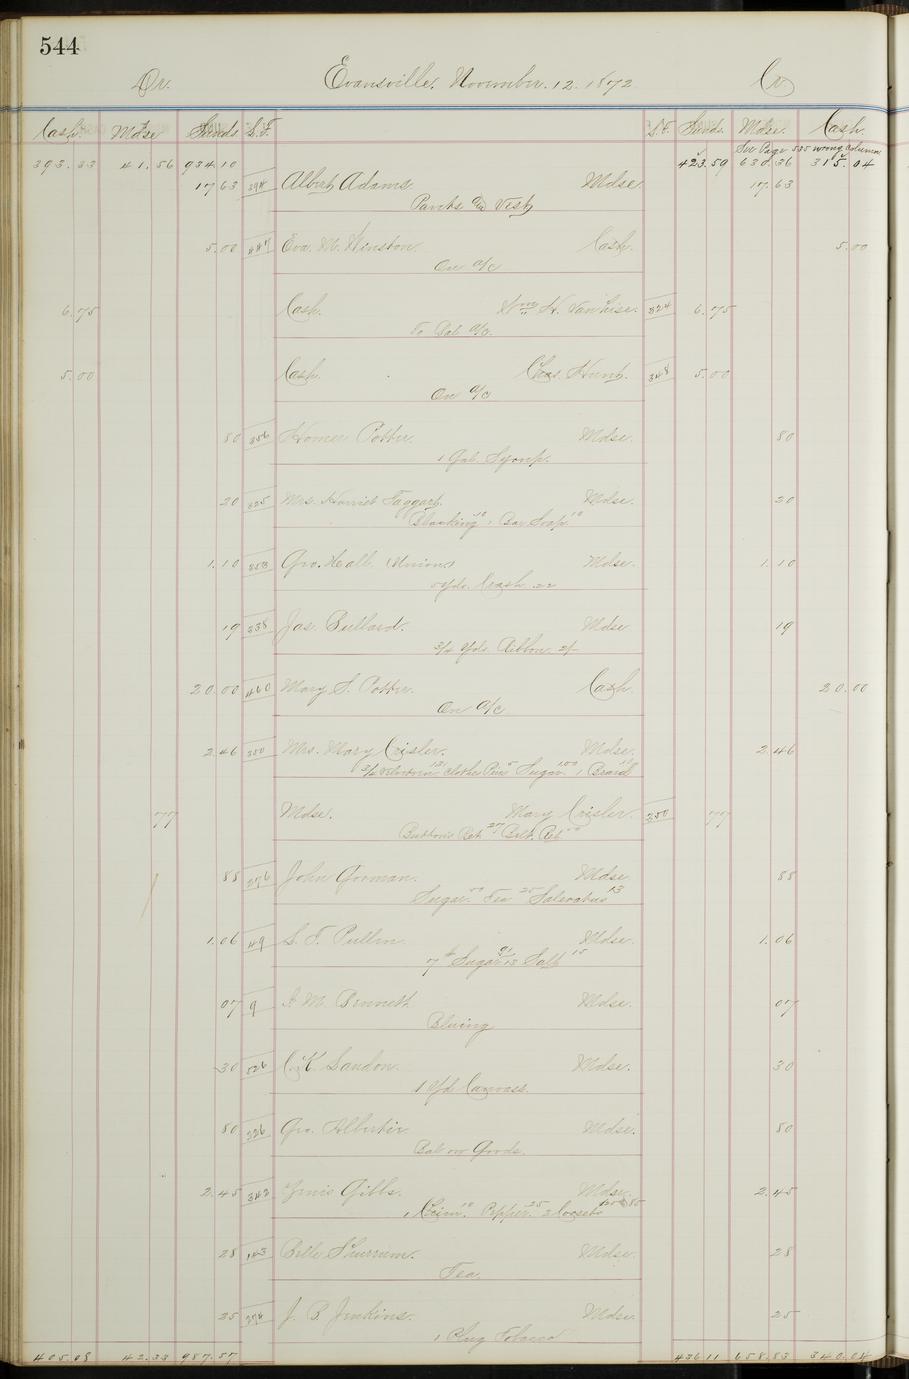 544
Dr. Evansville, November. 12. 1872 Cr
Cash. Mdse Sunds S.F. S.F. Sunds. Mdse. Cash.
See Page 535 wrong column
393.33 41.56 934.10 423.59 630.36 315.04
17 63 394 Albert Adams. Mdse. 17.63
Pants and Vest
5.00 447 Eva. M. Winston Cash. 5.00
On a/c
6.75 Cash. Wm H. VanHise. 324 6.75
To Bal a/c.
5.00 Cash. Chas. Hunt. 348 5.00
On a/c
80 356 Homer Potter. Mdse. 80
1 Gal. Syrup.
20 325 Mrs. Harriet Taggart. Mdse. 20
Blacking 10 1 Bar Soap 10
1.10 353 Geo. Hall. (Union) Mdse. 1.10
5 Yds. Crash .22
19 338 Jas. Bullard. Mdse 19
3/4 Yds. Ribbon. 2/-
20.00 460 Mary S. Potter. Cash. 20.00
On a/c
2.46 350 Mrs. Mary Crisler. Mdse. 2.46
Clothes Pins 5 Sugar 100 1 Braid
77 Mdse. Mary Crisler. 350 77
Buttons Ret 27 Belt. Ret 50
88 276 John Gorman. Mdse 88
Sugar. 50 Tea 25 Saleratus 13
1.06 49 S. F. Pullen. Mdse. 1.06
7 # Sugar 13 91 Salt 15
07 9 I. M. Bennett Mdse. 07
Bluing
30 526 C. K. Landon. Mdse. 30
1 Yd Canvass.
80 226 Geo. Mdse. 80
Bal on Goods.
2.45 342 Gibbs. Mdse. 2.45
1 10 Pepper. 25 2 Corsets
28 143 Belle Mdse. 28
Tea.
25 374 J. B. Jenkins. Mdse. 25
1 Plug Tobacco
405.08 42.33 987.57 436.11 658.83 340.04